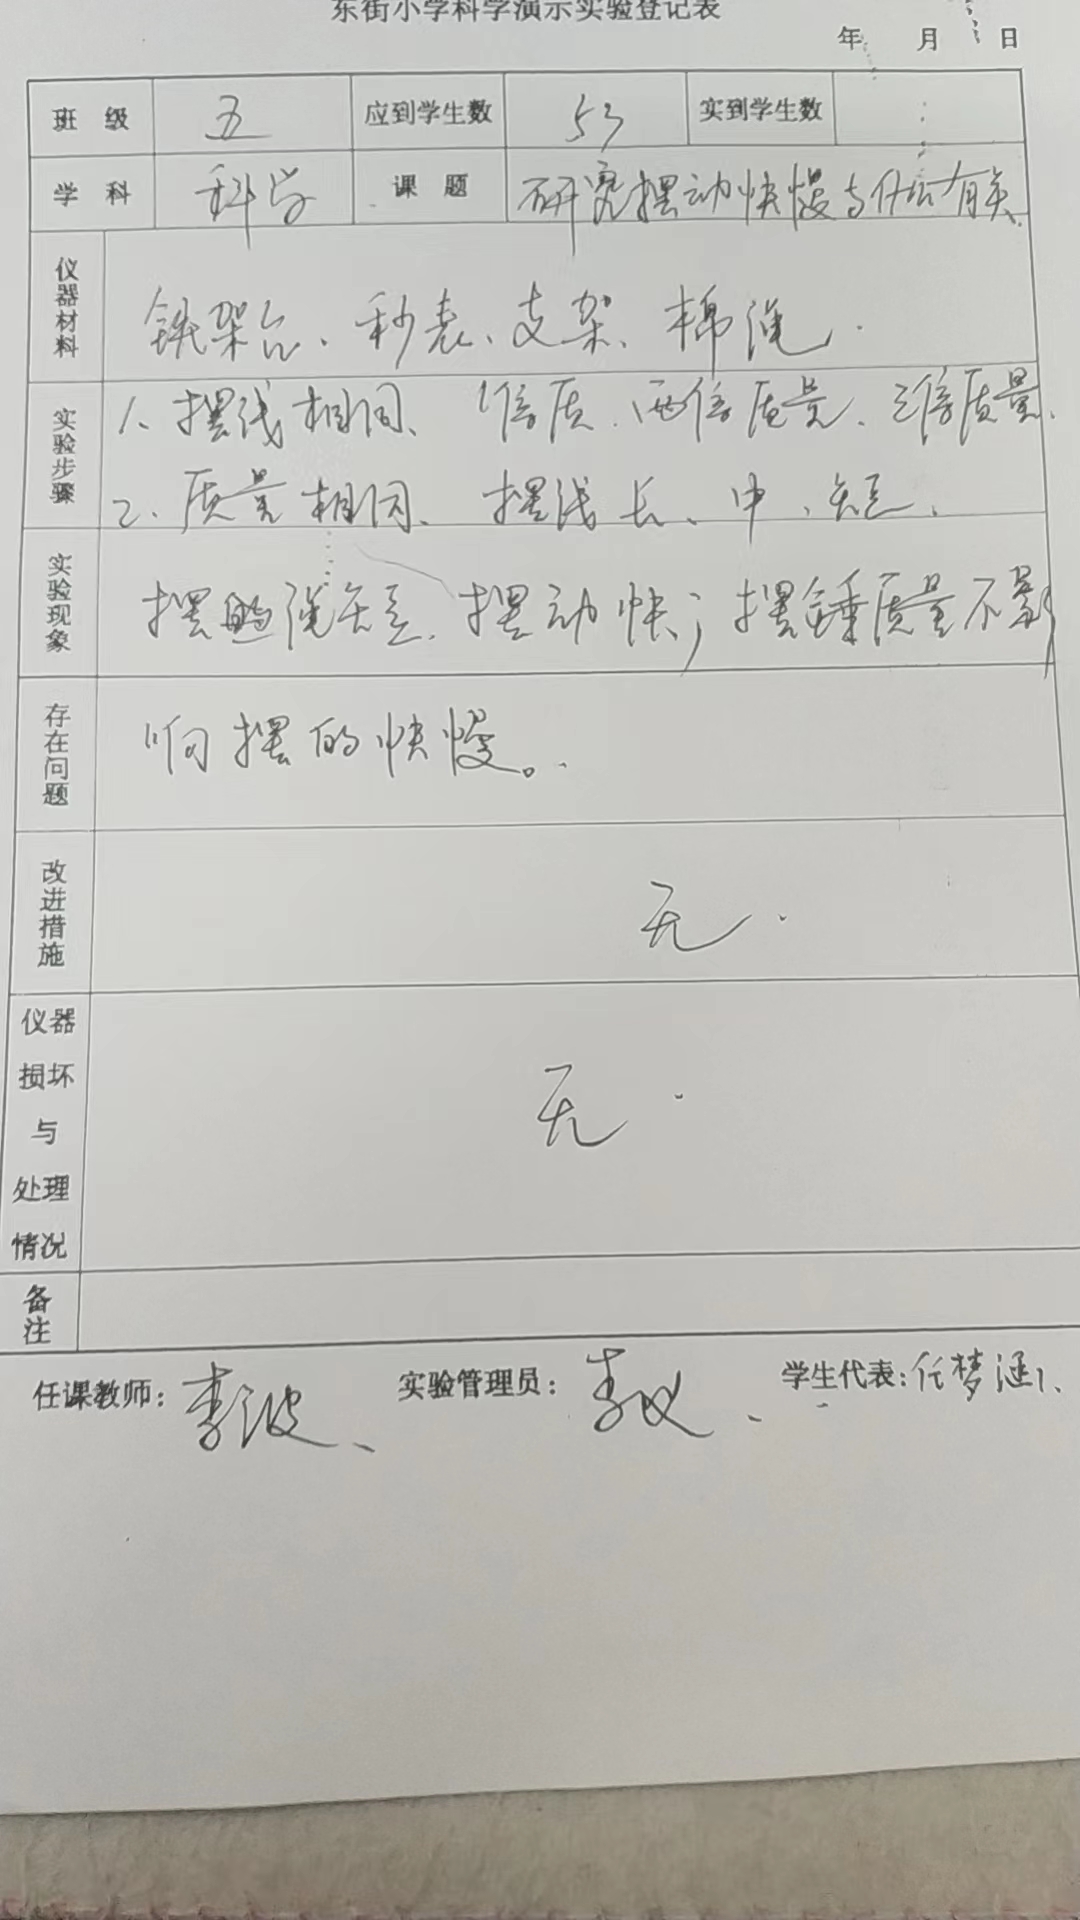 东街小学科学演示实验登记表
年 月 日
班 级 五 应到学生数 53 实到学生数
学 科 科学 课 题 研究摆动快慢与什么有关
仪器材料 铁架台、秒表、支架、棉绳.
实验步骤 1、摆线相同、1倍质、两倍质量、三倍质量、
2、质量相同、摆线长、中、短、
实验现象 摆的绳短、摆动快;摆锤质量不影
存在问题 响摆的快慢。
改进措施 无.
仪器损坏与处理情况 无.
备注
任课教师:李波、 实验管理员:李 、 学生代表:任梦涵、